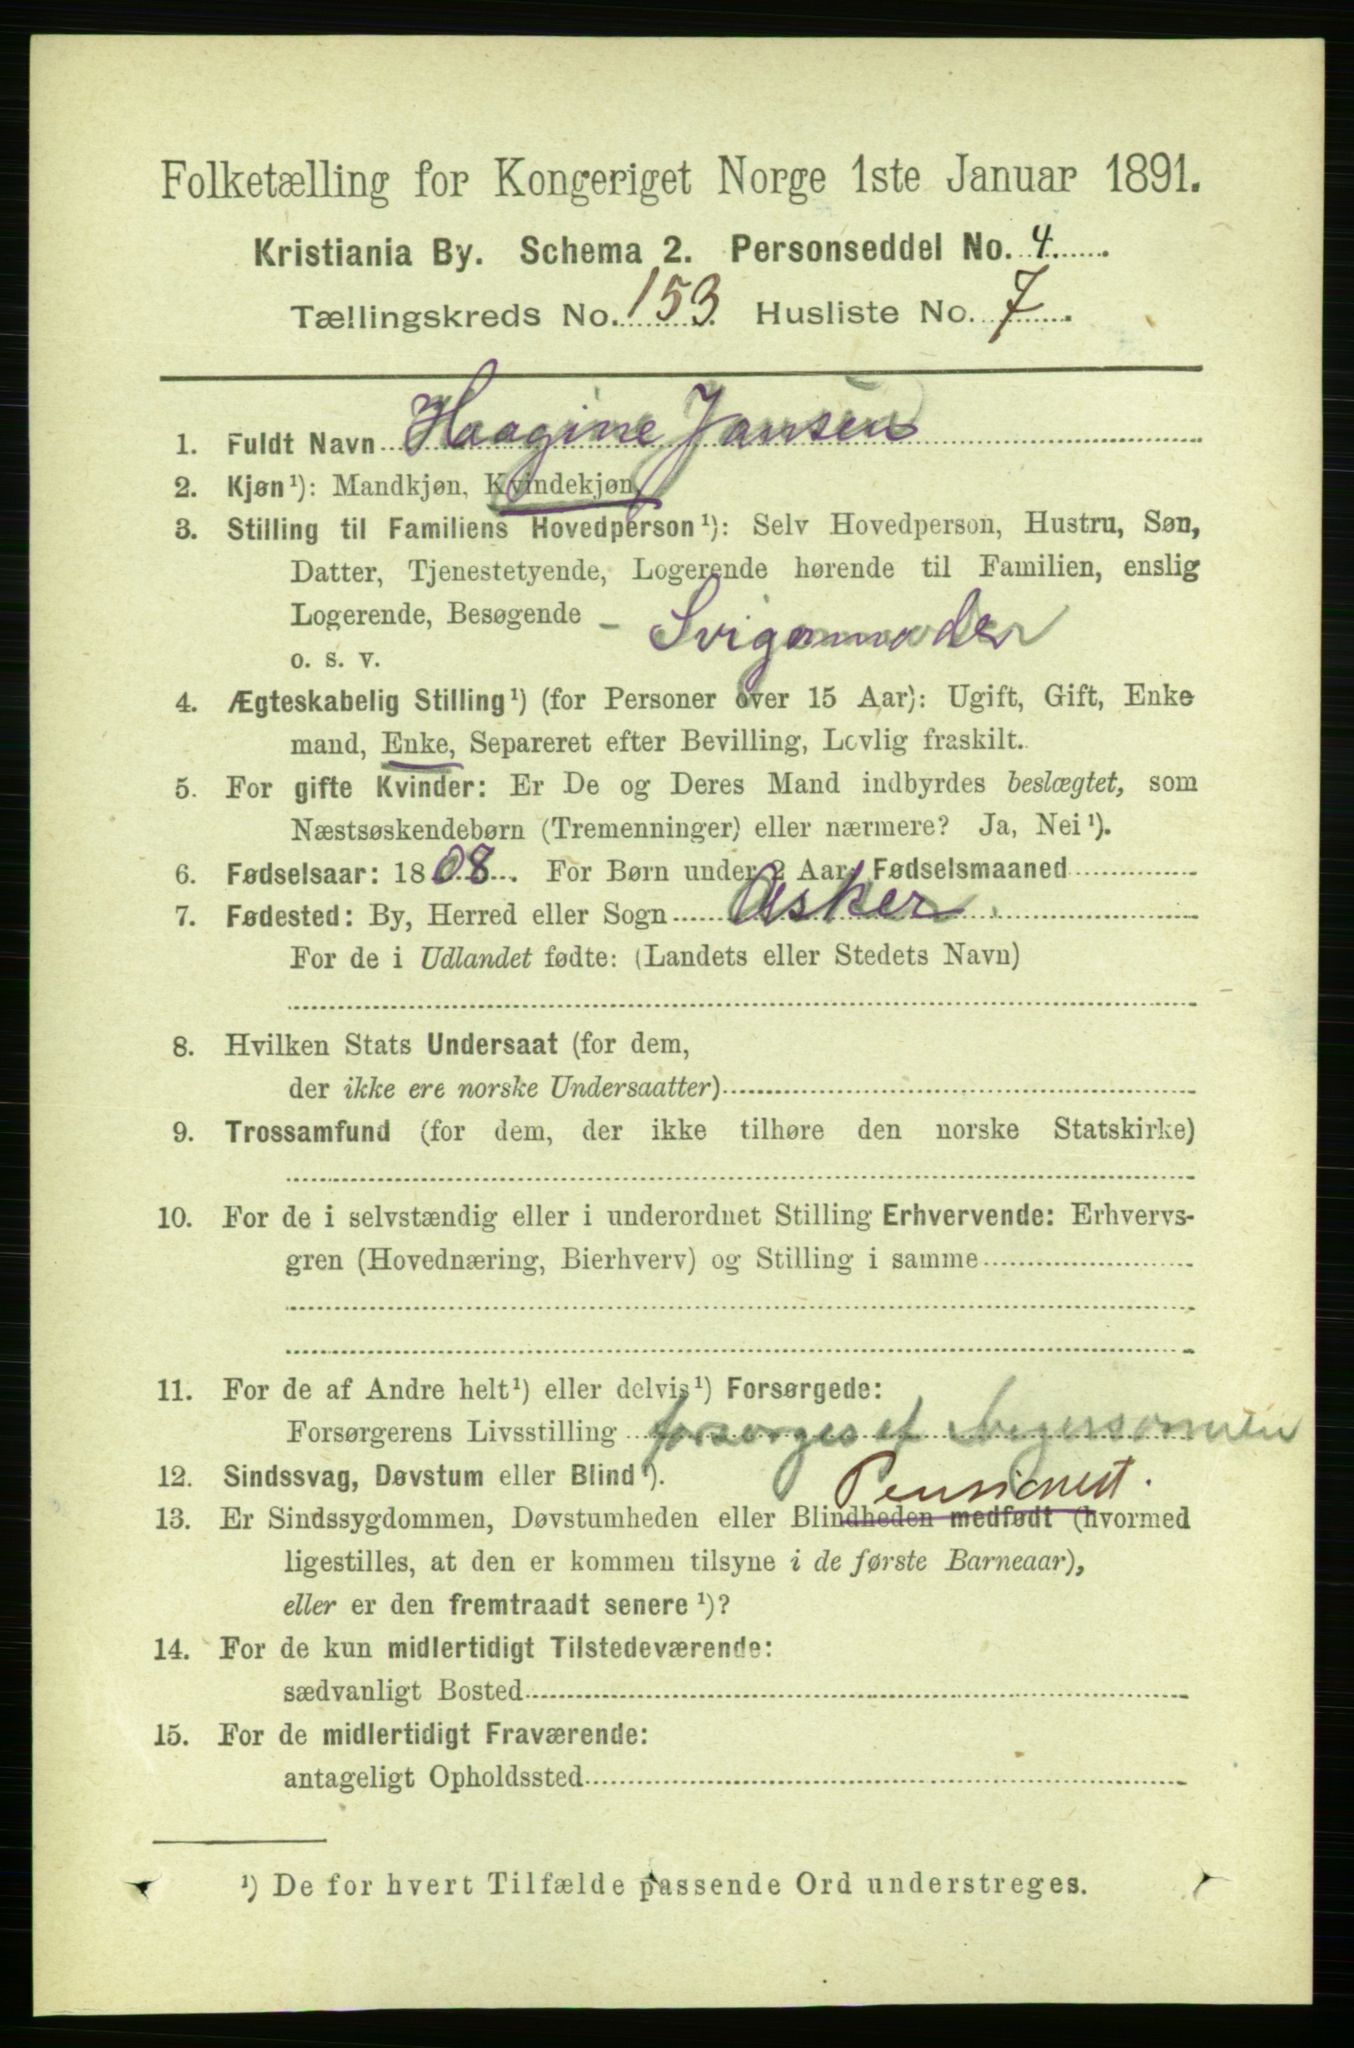 Folketælling for Kongeriget Norge 1ste Januar 1891.
Kristiania By. Schema 2. Personseddel No. 4
Tællingskreds No. 153 Husliste No. 7
1. Fuldt Navn Haagine Jansen
2. Kjøn¹): Mandkjøn, Kvindekjøn.
3. Stilling til Familiens Hovedperson¹): Selv Hovedperson, Hustru, Søn,
Datter, Tjenestetyende, Logerende hørende til Familien, enslig
Logerende, Besøgende – Svigermoder
o. s. v.
4. Ægteskabelig Stilling¹) (for Personer over 15 Aar): Ugift, Gift, Enke
mand, Enke, Separeret efter Bevilling, Lovlig fraskilt.
5. For gifte Kvinder: Er De og Deres Mand indbyrdes beslægtet, som
Næstsøskendebørn (Tremenninger) eller nærmere? Ja, Nei¹).
6. Fødselsaar: 1808. For Børn under 2 Aar, Fødselsmaaned
7. Fødested: By, Herred eller Sogn Asker
For de i Udlandet fødte: (Landets eller Stedets Navn)
8. Hvilken Stats Undersaat (for dem,
der ikke ere norske Undersaatter)
9. Trossamfund (for dem, der ikke tilhøre den norske Statskirke)
10. For de i selvstændig eller i underordnet Stilling Erhvervende: Erhvervs-
gren (Hovednæring, Bierhverv) og Stilling i samme
11. For de af Andre helt¹) eller delvis¹) Forsørgede:
Forsørgerens Livsstilling forsørges af Svigersønnen
12. Sindssvag, Døvstum eller Blind¹). Pensionist.
13. Er Sindssygdommen, Døvstumheden eller Blindheden medfødt (hvormed
ligestilles, at den er kommen tilsyne i de første Barneaar),
eller er den fremtraadt senere¹)?
14. For de kun midlertidigt Tilstedeværende:
sædvanligt Bosted
15. For de midlertidigt Fraværende:
antageligt Opholdssted
¹) De for hvert Tilfælde passende Ord understreges.